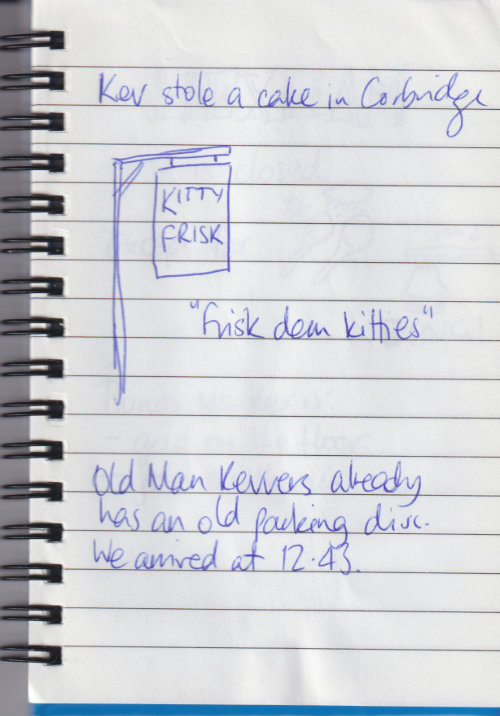 Kev stole a cake in Corbridge
KITTY
FRISK
"frisk dem kitties"
Old Man Kevvers already
has an old parking disc.
We arrived at 12.43.